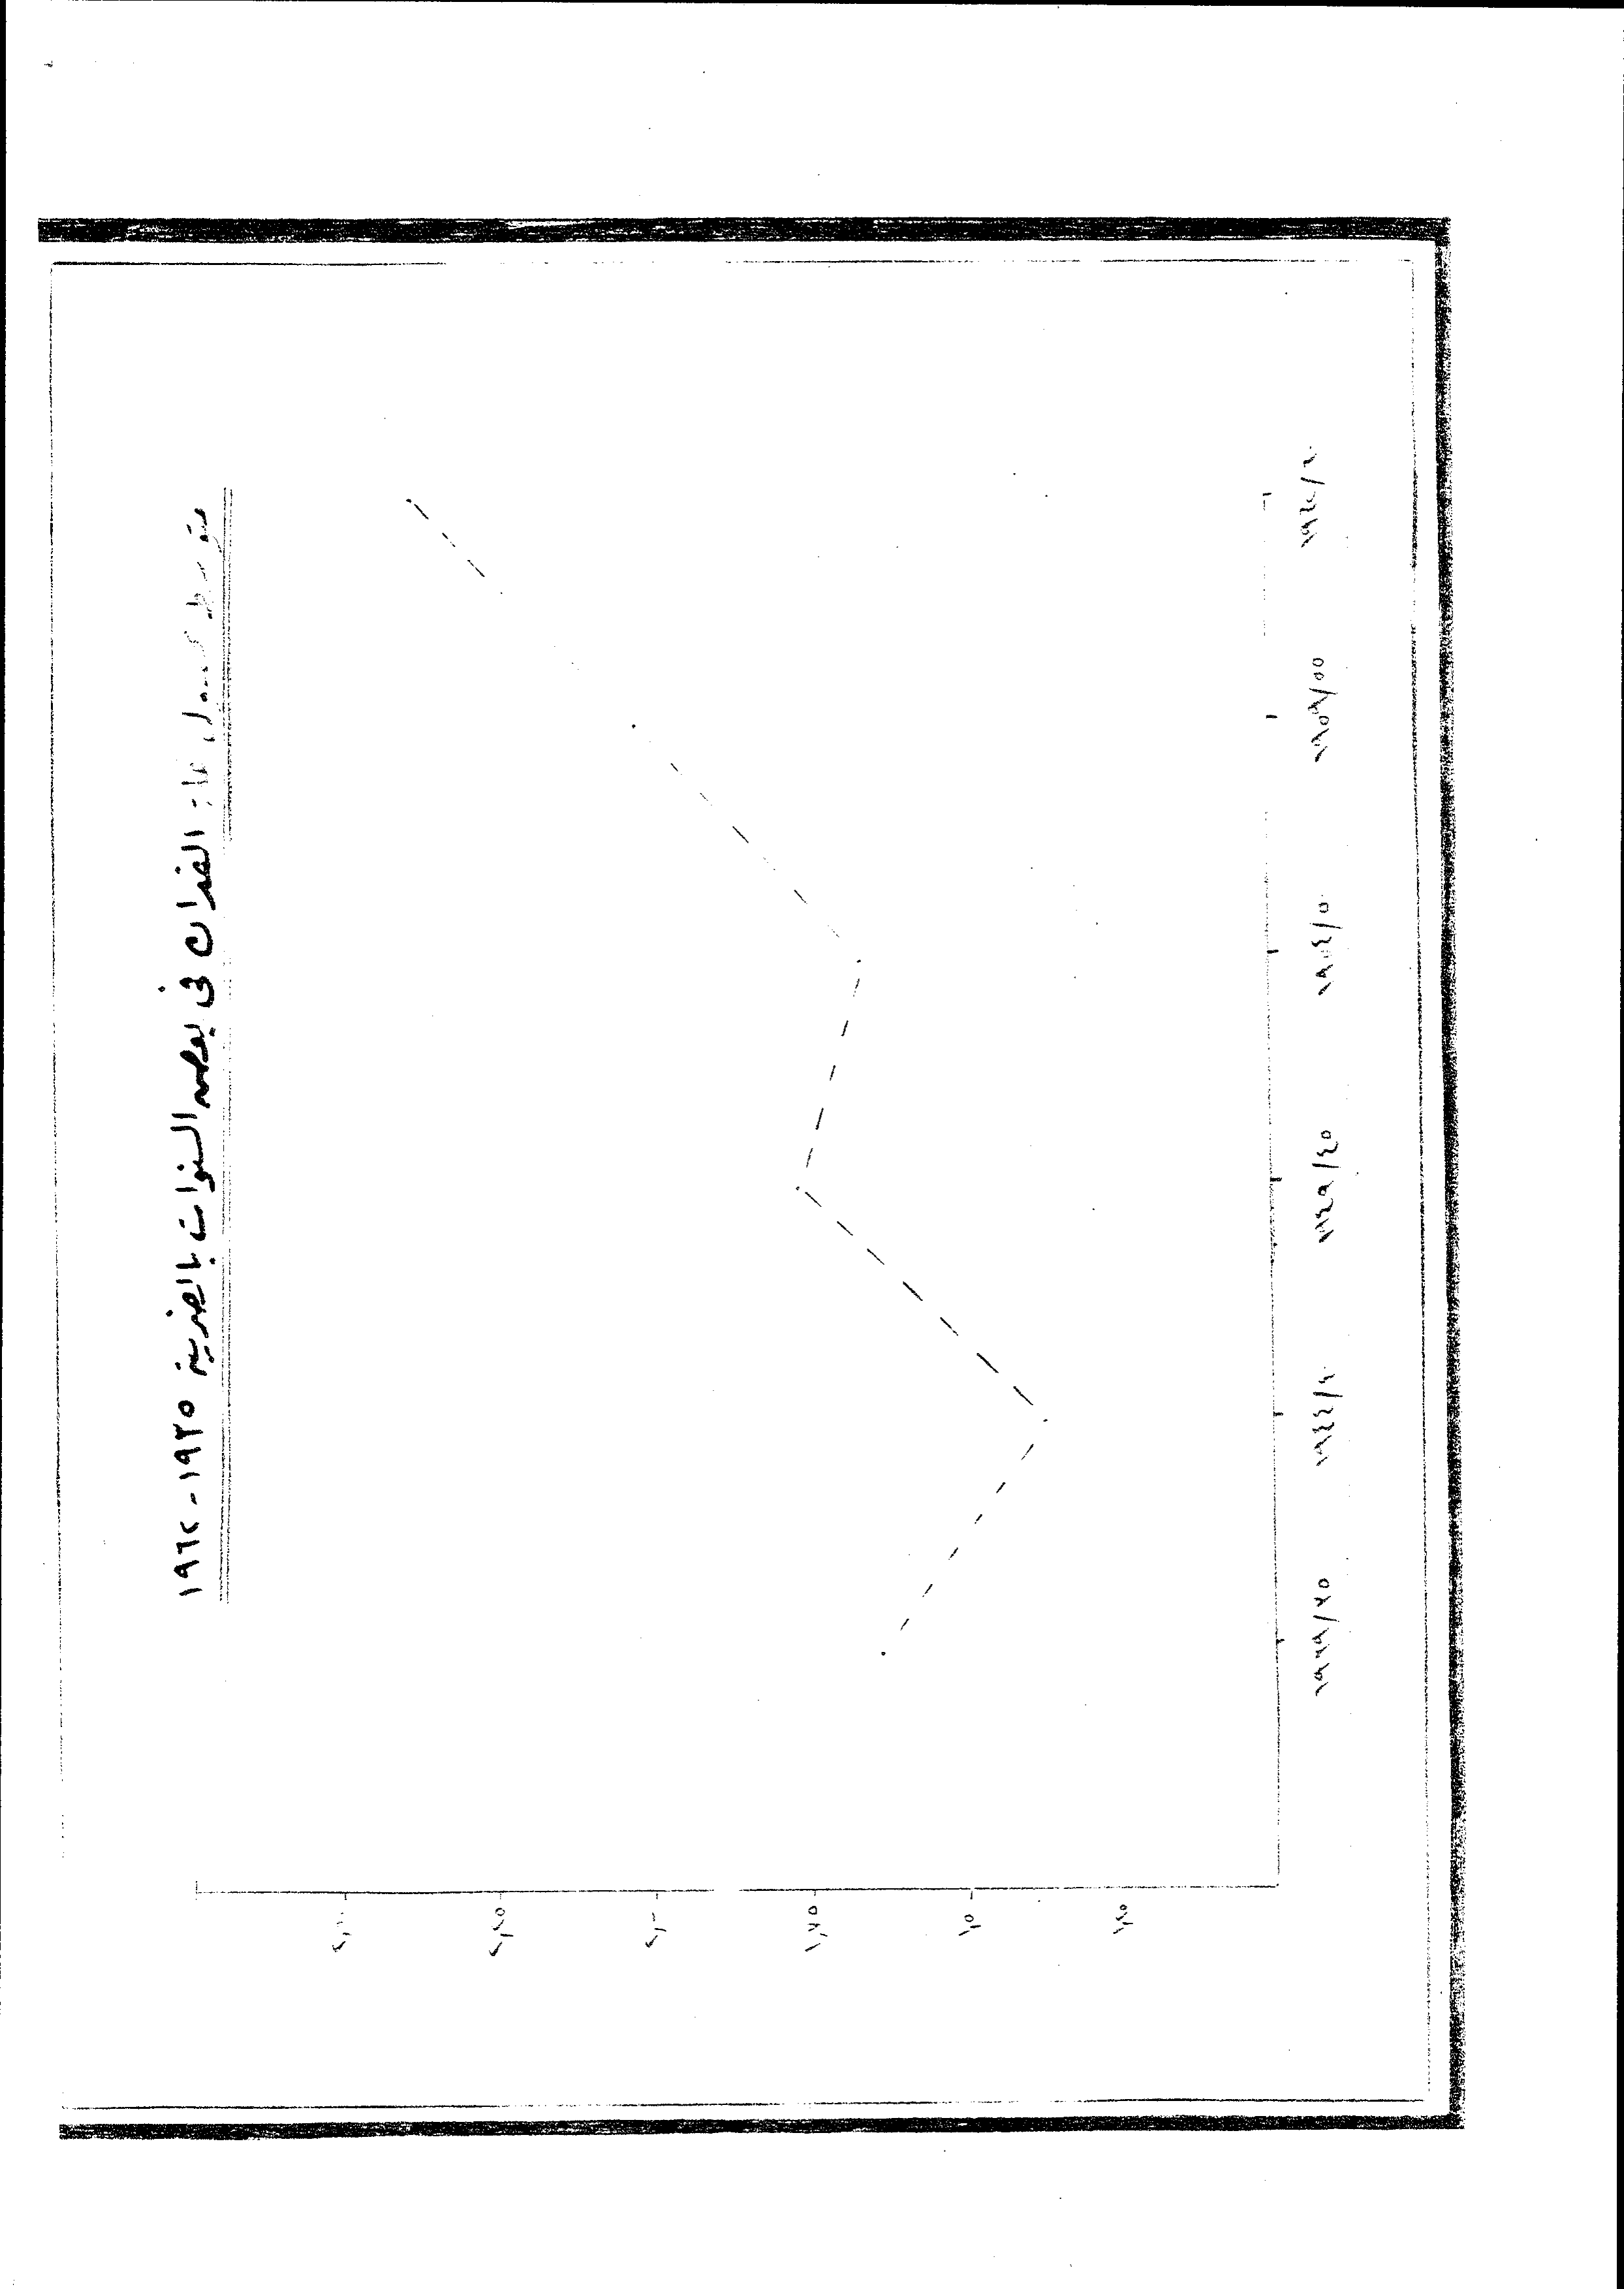 متوسط محصول غلة الفدان فى بعض السنوات بالغربية ١٩٣٥ - ١٩٦٢
٢,٢٥
٢,٠
١,٧٥
١,٥
١,٢٥
١٩٣٩/٣٥
١٩٤٤/٤٠
١٩٤٩/٤٥
١٩٥٤/٥٠
١٩٥٩/٥٥
١٩٦٢/٦٠